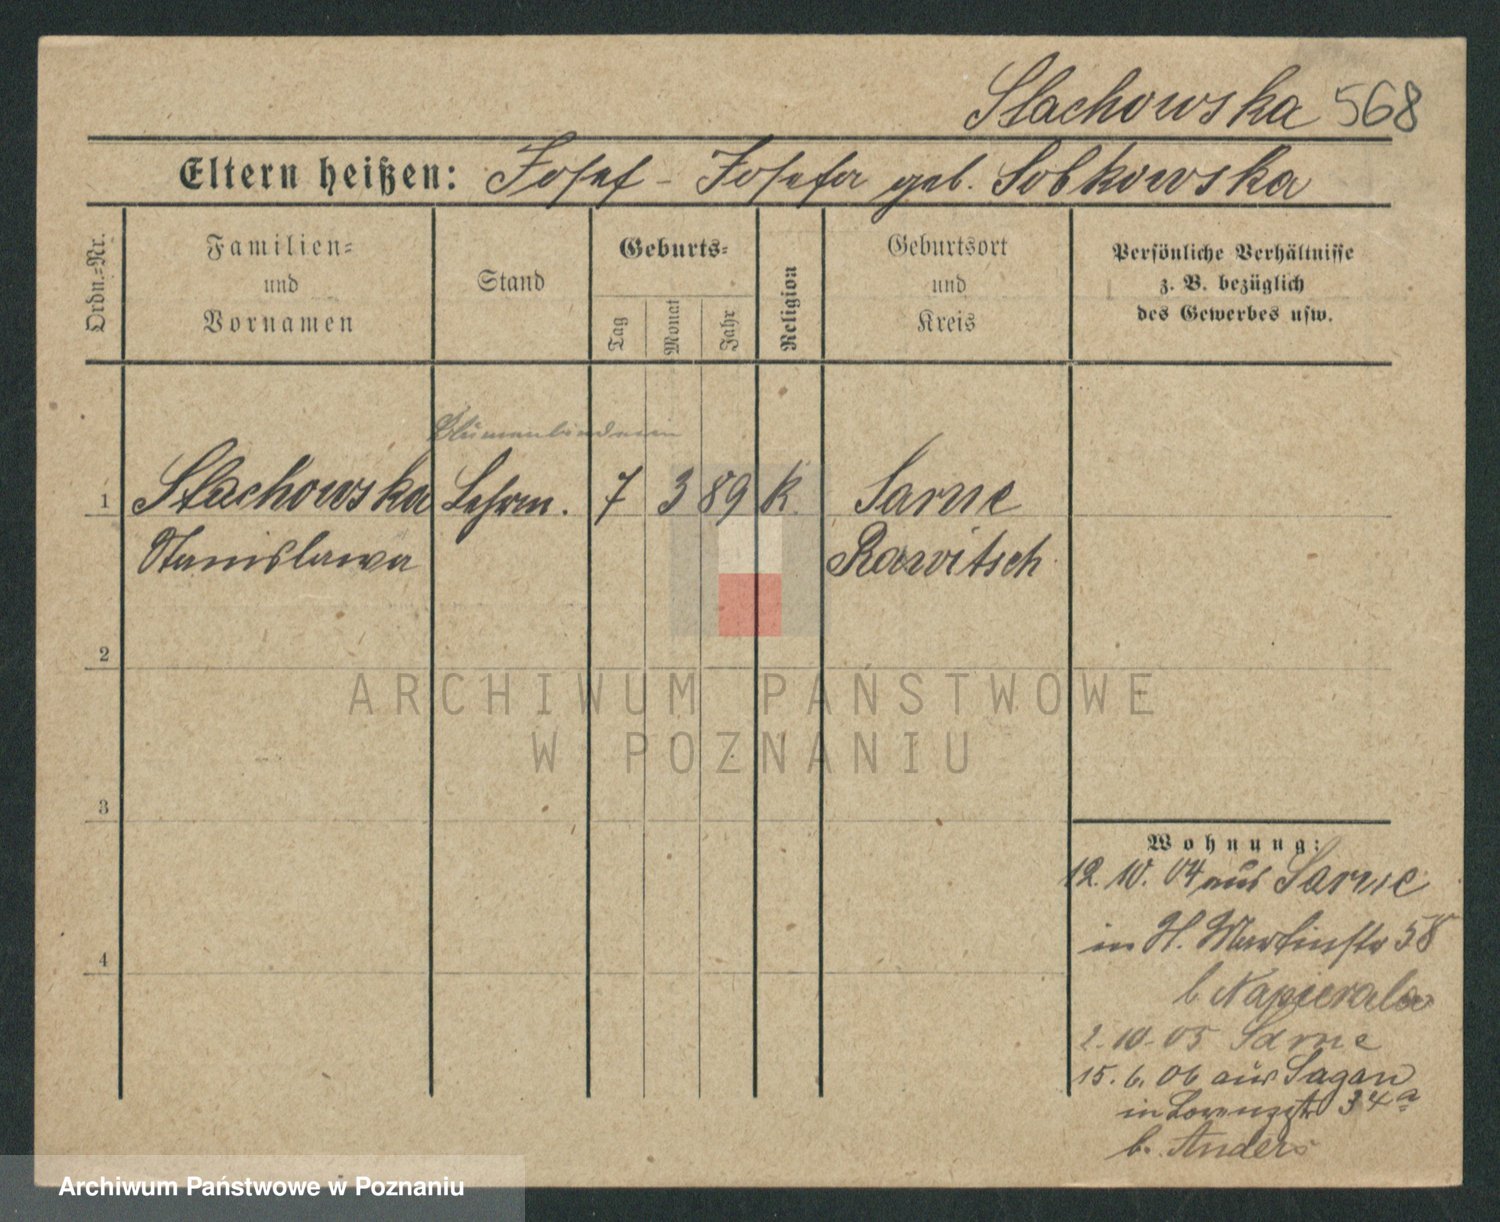 Stachowska 568
Eltern heißen: Josef - Josefa geb. Sobkowska
Ordn.=Nr.
Familien=
und
Vornamen
Stand
Geburts=
Tag
Monat
Jahr
Religion
Geburtsort
und
Kreis
Persönliche Verhältnisse
z. B. bezüglich
des Gewerbes usw.
Blumenbinderin
1 Stachowska Lehrm. 7 3 89 K. Sarne
Stanislawa Rawitsch
2
ARCHIWUM PAŃSTWOWE
W POZNANIU
3
Wohnung:
12. 10. 04 aus Sarne
in St. Martinstr 58
b Napierala
4
2. 10. 05 Sarne
15. 6. 06 aus Sagan
in Lorenzstr 34a
b. Anders
Archiwum Państwowe w Poznaniu